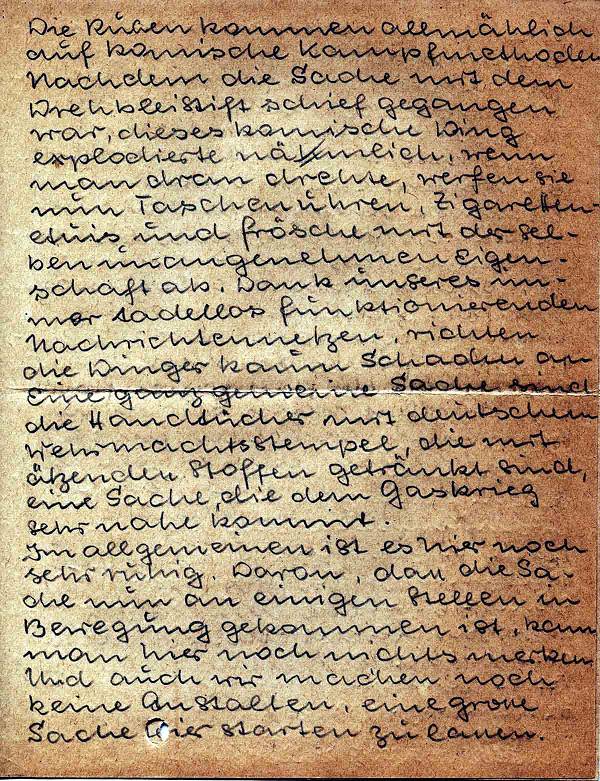 Die Ruben kommen allmählich
auf komische Kampfmethoden
Nachdem die Sache mit dem
Drehbleistift schief gegangen
war, dieses komische Ding
explodierte nähmlich, wenn
man dran drehte, werfen sie
nun Taschenuhren, Zigaretten-
etuis und frösche mit der sel-
ben unangenehmen Eigen-
schaft ab. Dank unseres im-
mer tadellos funktionierenden
Nachrichtennetzen, richten
die Dinger kaum Schaden an
Eine ganz gemeine Sache sind
die Handtücher mit deutschem
Wehrmachtsstempel, die mit
ätzenden Stoffen getränkt sind,
eine Sache, die dem Gaskrieg
sehr nahe kommt.
Im allgemeinen ist es hier noch
sehr ruhig. Daron, daß die Sa-
che nun an einigen Stellen in
Bewegung gekommen ist, kann
man hier noch nichts merken
Und auch wir machen noch
keine Anstalten, eine große
Sache hier starten zu lassen.